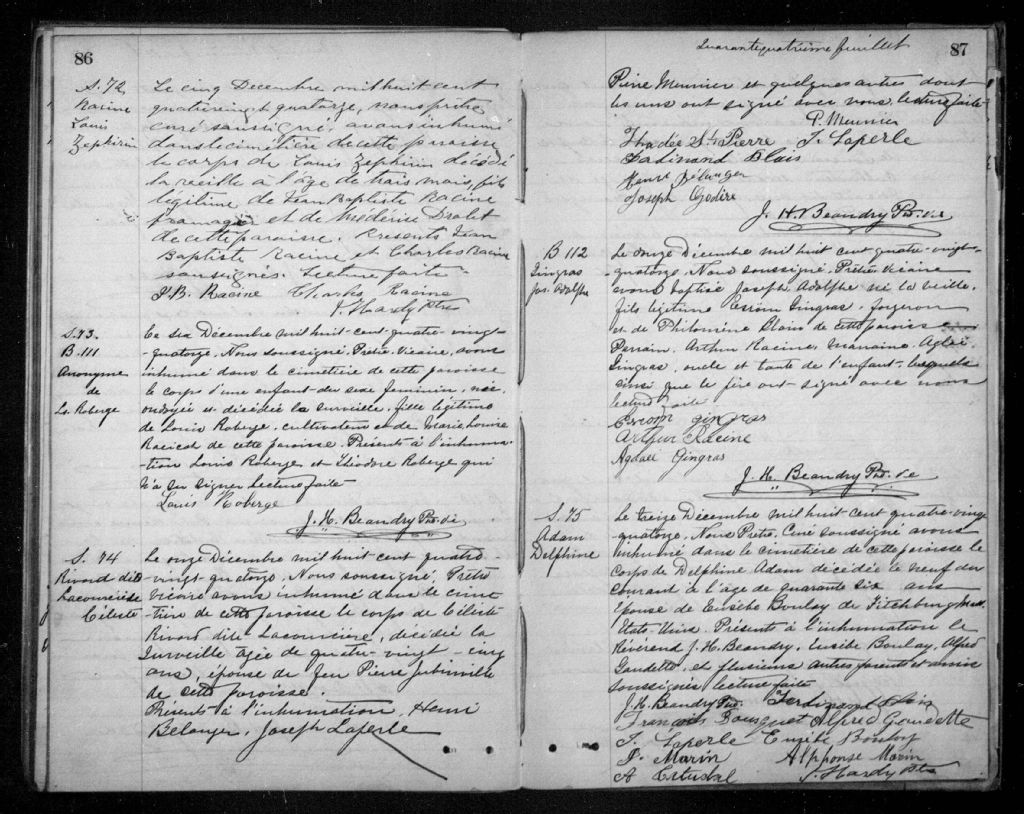 86
S. 72
Racine
Louis
Zephirin
Le cinq Décembre mil huit cent
quatrevingt quatorze, nous prêtre
curé soussigné, avons inhumé
dans le cimetière de cette paroisse
le corps de Louis Zephirin décédé
la veille à l'âge de trois mois, fils
légitime de Jean Baptiste Racine
fromager et de Medérise Drolet
de cette paroisse. Présents Jean
Baptiste Racine et Charles Racine
soussignés. Lecture faite
J.B. Racine Charles Racine
J. Hardy Ptre
S. 73.
B. 111
Anonyme
de
Ls. Roberge
Le six Décembre mil huit cent quatre-vingt
-quatorze, Nous soussigné, Prêtre Vicaire, avons
inhumé dans le cimetière de cette paroisse
le corps d'une enfant du sexe feminin, née,
ondoyée et décédée la surveille, fille légitime
de Louis Roberge, cultivateur et de Marie Louise
Racicot de cette paroisse. Présents à l'inhuma-
tion Louis Roberge et Théodore Roberge qui
n'a su signer Lecture faite
Louis Roberge
J. H. Beaudry Ptre. vic
S. 74
Rivard dite
Lacoursière
Céleste
Le onze Décembre mil huit cent quatre-
vingt quatorze, Nous soussigné, Prêtre
Vicaire avons inhumé dans le cime
tière de cette paroisse le corps de Céleste
Rivard dite Lacoursière, décédée la
surveille agée de quatre-vingt-cinq
ans, épouse de feu Pierre Jubinville
de cette paroisse.
Présents à l'inhumation, Henri
Bélanger, Joseph Laperle
Quarantequatrième feuillet
87
Pierre Meunier et quelques autres dont
les uns ont signé avec nous. lecture faite
P. Meunier
Thadée St Pierre J. Laperle
Ferdinand Blais
Henri Bélanger
Joseph Godère
J. H. Beaudry Ptre. vic
B 112
Gingras
Jos. Adolphe
Le onze Décembre mil huit cent quatre-vingt
quatorze, Nous soussigné, Prêtre Vicaire
avons baptisé Joseph Adolphe né la veille,
fils légitime Gingras forgeron
et de Philomène Blais de cette paroisse
Parrain, Arthur Racine, Marraine, Aglaé
Gingras, oncle et tante de l'enfant lesquels
ainsi que le père ont signé avec nous
lecture faite
gingras
Arthur Racine
Gingras
J. H. Beaudry Ptre. vic
S. 75
Adam
Delphine
Le treize Décembre mil huit cent quatre-vingt
quatorze, Nous Prêtre Curé soussigné avons
inhumé dans le cimetière de cette paroisse le
corps de Delphine Adam décédée le neuf du
courant à l'age de quarante six ans
épouse de Eusèbe Boulay de Fitchburg Mass.
Etats-Unis. Présents à l'inhumation le
Révérend J. H. Beaudry, Eusèbe Boulay, Alfred
Gaudette, et plusieurs autres parents et amis
soussignés lecture faite
J. H. Beaudry Ptre. Ferdinand Blais
François Bousquet Alfred Gaudette
J. Laperle Eusèbe Boulay
P. Marin Alphonse Marin
A J. Hardy Ptre